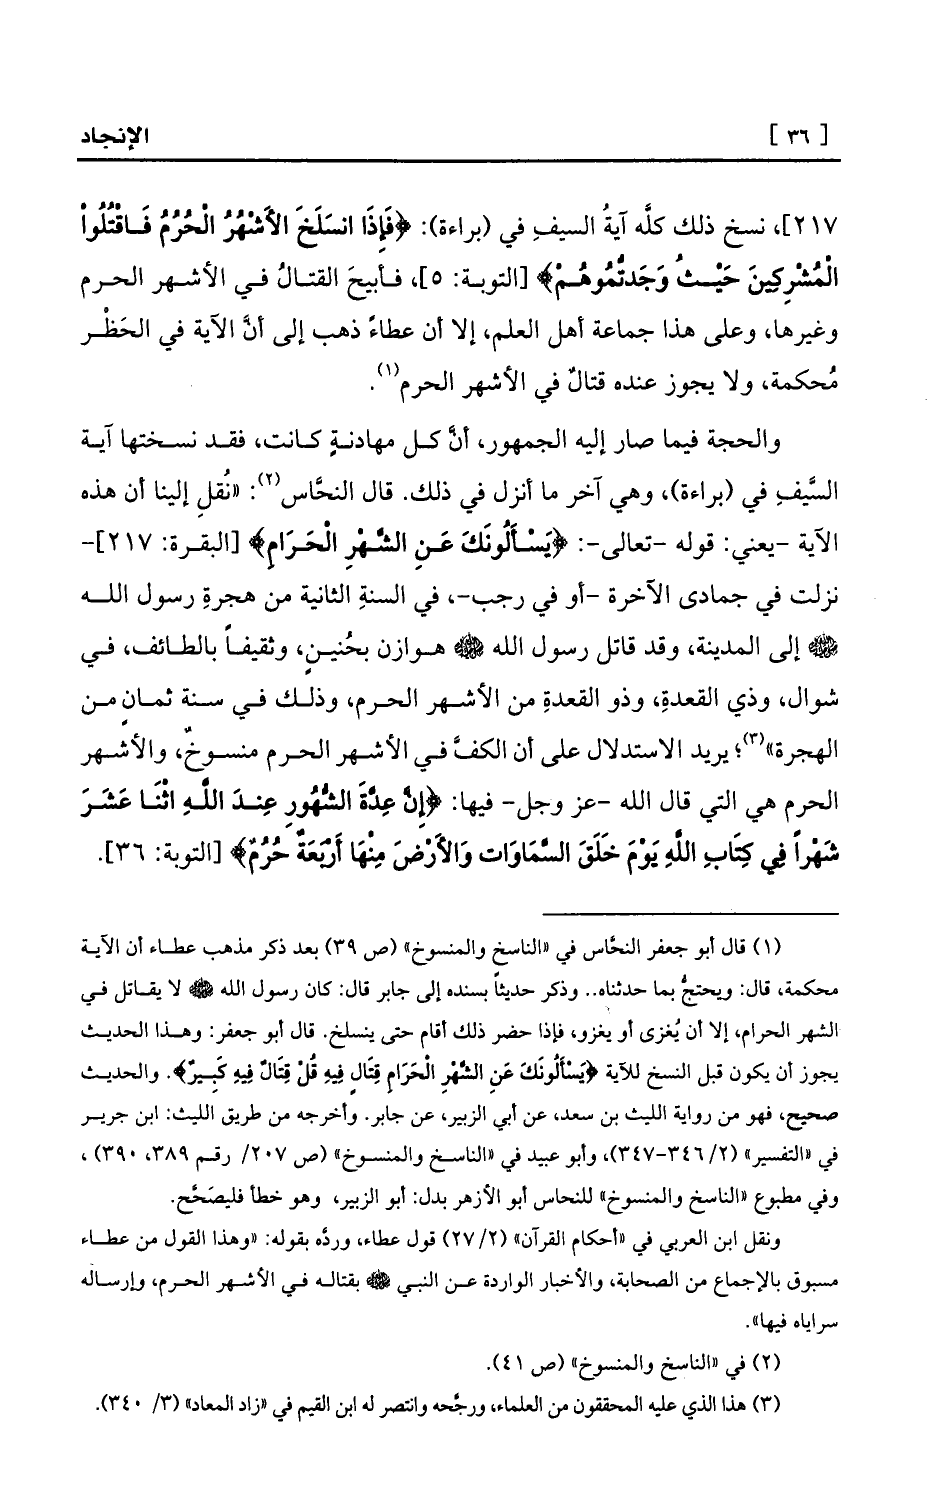 [ ٣٦ ] الإنجاد
٢١٧]، نسخ ذلك كلَّه آيةُ السيفِ في (براءة): ﴿فَإِذَا انسَلَخَ الأَشْهُرُ الْحُرُمُ فَاقْتُلُواْ
الْمُشْرِكِينَ حَيْثُ وَجَدتُّمُوهُمْ﴾ [التوبة: ٥]، فأبيحَ القتالُ في الأشهر الحرم
وغيرها، وعلى هذا جماعة أهل العلم، إلا أن عطاءً ذهب إلى أنَّ الآية في الحَظْر
مُحكمة، ولا يجوز عنده قتالٌ في الأشهر الحرم(١).
والحجة فيما صار إليه الجمهور، أنَّ كل مهادنةٍ كانت، فقد نسختها آية
السَّيفِ في (براءة)، وهي آخر ما أنزل في ذلك. قال النحَّاس(٢): «نُقل إلينا أن هذه
الآية -يعني: قوله -تعالى-: ﴿يَسْأَلُونَكَ عَنِ الشَّهْرِ الْحَرَامِ﴾ [البقرة: ٢١٧]-
نزلت في جمادى الآخرة -أو في رجب-، في السنةِ الثانية من هجرةِ رسول الله
ﷺ إلى المدينة، وقد قاتل رسول الله ﷺ هوازن بحُنينٍ، وثقيفاً بالطائف، في
شوال، وذي القعدةِ، وذو القعدةِ من الأشهر الحرم، وذلك في سنة ثمانٍ من
الهجرة»(٣)؛ يريد الاستدلال على أن الكفَّ في الأشهر الحرم منسوخٌ، والأشهر
الحرم هي التي قال الله -عز وجل- فيها: ﴿إِنَّ عِدَّةَ الشُّهُورِ عِندَ اللَّهِ اثْنَا عَشَرَ
شَهْراً فِي كِتَابِ اللَّهِ يَوْمَ خَلَقَ السَّمَاوَات وَالأَرْضَ مِنْهَا أَرْبَعَةٌ حُرُمٌ﴾ [التوبة: ٣٦].
(١) قال أبو جعفر النحَّاس في «الناسخ والمنسوخ» (ص ٣٩) بعد ذكر مذهب عطاء أن الآية
محكمة، قال: ويحتجُّ بما حدثناه.. وذكر حديثاً بسنده إلى جابر قال: كان رسول الله ﷺ لا يقاتل في
الشهر الحرام، إلا أن يُغزى أو يغزو، فإذا حضر ذلك أقام حتى ينسلخ. قال أبو جعفر: وهذا الحديث
يجوز أن يكون قبل النسخ للآية ﴿يَسْأَلُونَكَ عَنِ الشَّهْرِ الْحَرَامِ قِتَالٍ فِيهِ قُلْ قِتَالٌ فِيهِ كَبِيرٌ﴾. والحديث
صحيح، فهو من رواية الليث بن سعد، عن أبي الزبير، عن جابر. وأخرجه من طريق الليث: ابن جرير
في «التفسير» (٢/ ٣٤٦-٣٤٧)، وأبو عبيد في «الناسخ والمنسوخ» (ص ٢٠٧/ رقم ٣٨٩، ٣٩٠) ،
وفي مطبوع «الناسخ والمنسوخ» للنحاس أبو الأزهر بدل: أبو الزبير، وهو خطأ فليصَحَّح.
ونقل ابن العربي في «أحكام القرآن» (٢/ ٢٧) قول عطاء، وردَّه بقوله: «وهذا القول من عطاء
مسبوق بالإجماع من الصحابة، والأخبار الواردة عن النبي ﷺ بقتاله في الأشهر الحرم، وإرساله
سراياه فيها».
(٢) في «الناسخ والمنسوخ» (ص ٤١).
(٣) هذا الذي عليه المحققون من العلماء، ورجَّحه وانتصر له ابن القيم في «زاد المعاد» (٣/ ٣٤٠).